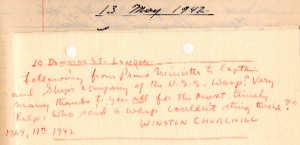 13 May 1942.
10 DOWNING ST. LONDON.
"Following from Prime Minister to Captain
and Ship's company of the U.S.S. Wasp." Very
many thanks to you all for the most timely
help. Who said a Wasp couldn't sting twice?"
WINSTON CHURCHILL
MAY, 11TH 1942